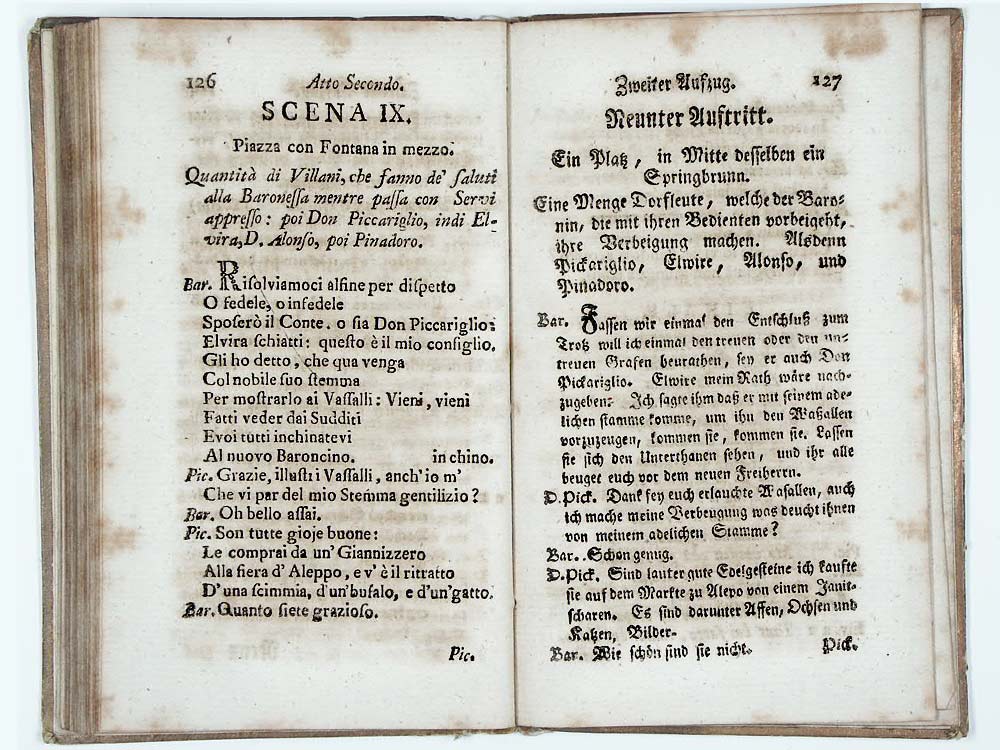 126 Atto Secondo.
SCENA IX.
Piazza con Fontana in mezzo.
Quantità di Villani, che fanno de' ſaluti
alla Baroneſſa mentre paſſa con Servi
appreſſo: poi Don Piccariglio, indi El-
vira, D. Alonſo, poi Pinadoro.
Bar. Riſolviamoci alfine per diſpetto
O fedele, o infedele
Spoſerò il Conte. o ſia Don Piccariglio:
Elvira ſchiatti: queſto è il mio conſiglio.
Gli ho detto, che qua venga
Col nobile ſuo ſtemma
Per moſtrarlo ai Vaſſalli: Vieni, vieni
Fatti veder dai Sudditi
E voi tutti inchinatevi
Al nuovo Baroncino. in chino.
Pic. Grazie, illuſtri Vaſſalli, anch'io m'
Che vi par del mio Stemma gentilizio?
Bar. Oh bello aſſai.
Pic. Son tutte gioje buone:
Le comprai da un' Giannizzero
Alla fiera d' Aleppo, e v' è il ritratto
D' una ſcimmia, d'un'bufalo, e d'un'gatto.
Bar. Quanto ſiete grazioſo.
Pic.
Zweiter Aufzug. 127
Neunter Auftritt.
Ein Platz, in Mitte desſelben ein
Springbrunn.
Eine Menge Dorfleute, welche der Baro-
nin, die mit ihren Bedienten vorbeigeht,
ihre Verbeigung machen. Alsdenn
Pickariglio, Elwire, Alonſo, und
Pinadoro.
Bar. Faſſen wir einmal den Entſchluß zum
Trotz will ich einmal den treuen oder den un-
treuen Grafen heurathen, ſey er auch Don
Pickariglio. Elwire mein Rath wäre nach-
zugeben: Ich ſagte ihm daß er mit ſeinem ade-
lichen ſtamme komme, um ihn den Waßallen
vorzuzeugen, kommen ſie, kommen ſie. Laſſen
ſie ſich den Unterthanen ſehen, und ihr alle
beuget euch vor dem neuen Freiherrn.
D. Pick. Dank ſey euch erlauchte Waſallen, auch
ich mache meine Verbeugung was deucht ihnen
von meinem adelichen Stamme?
Bar. Schon genug.
D. Pick. Sind lauter gute Edelgeſteine ich kaufte
ſie auf dem Markte zu Alepo von einem Janit-
ſcharen. Es ſind darunter Affen, Ochſen und
Katzen, Bilder-
Bar. Wie ſchön ſind ſie nicht. Pick.